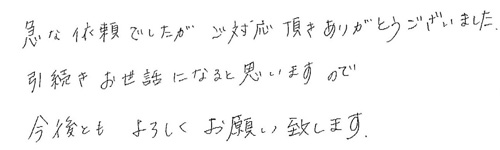 急な依頼でしたが ご対応頂きありがとうございました.
引続き お世話になると思いますので
今後とも よろしく お願い致します.